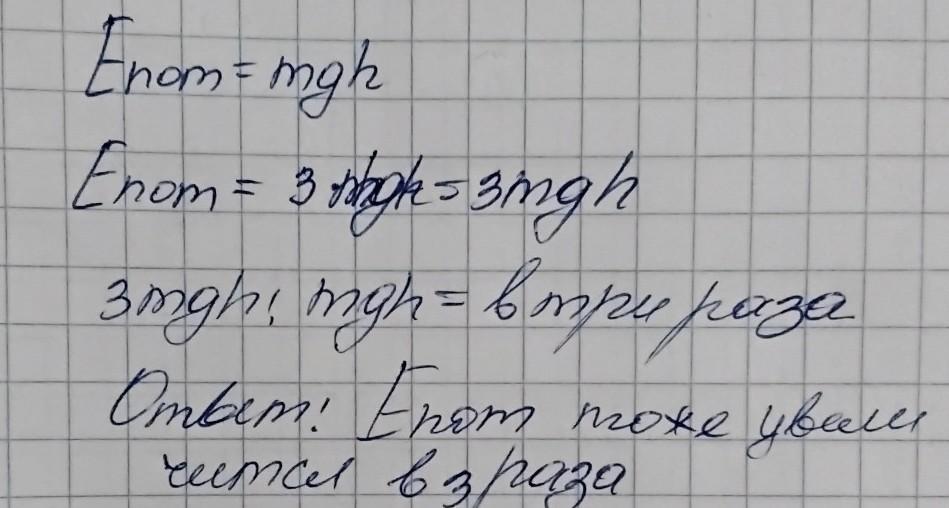 Eпот = mgh
Eпот = 3 mgh = 3mgh
3mgh : mgh = в три раза
Ответ: Eпот тоже увели
чится в 3 раза